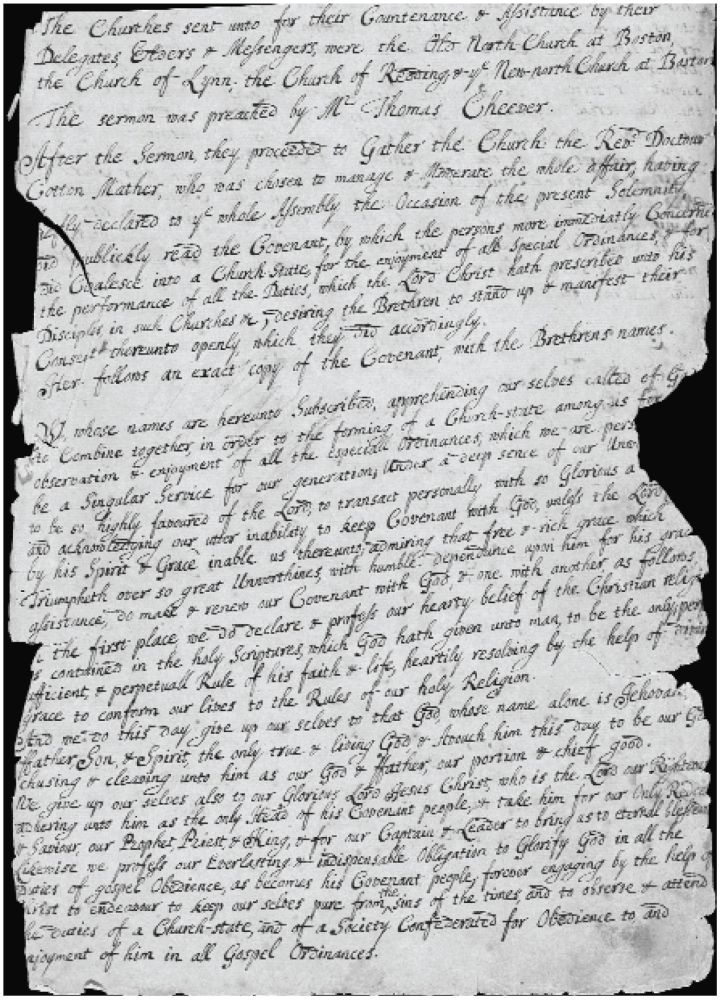 The Churches sent unto for their Countenance & Assistance by their
Delegates, Elders & Messengers, were the Old North Church at Boston,
the Church of Lynn, the Church of Redding, & yᵉ New-north Church at Boston
The sermon was preached by Mʳ Thomas Cheever.
After the Sermon, they proceeded to Gather the Church: the Revᵈ Doctour
Cotton Mather, who was chosen to manage & Moderate the whole affair, having
declared to yᵉ whole Assembly the Occasion of the present Solemnity
did publickly read the Covenant, by which the persons more immediatly Concerne
did Coalesce into a Church-State, for the enjoyment of all special Ordinances, & for
the performance of all the Duties, which the Lord Christ hath prescribed unto his
Disciples in such Churches &c; desiring the Brethren to stand up & manifest their
Consent thereunto openly which they did accordingly.
Her follows an exact copy of the Covenant, with the Brethrens names.
We, whose names are hereunto Subscribed, apprehending our selves called of G
to Combine together, in order to the forming of a Church-state among us for
observation & enjoyment of all the especiall Ordinances, which we are pers
be a Singular Service for our generation; Under a deep sence of our Unwo
to be so highly favoured of the Lord, to transact personally with so Glorious a
and acknowledging our utter inability to keep Covenant with God, unless the Lord
by his Spirit & Grace inable us thereunto, admiring that free & rich grace which
Triumpheth over so great Unworthines, with humble dependance upon him for his grac
assistance, do make & renew our Covenant with God & one with another as follows,
the first place we do declare & profess our hearty belief of the Christian religi
is contained in the holy Scriptures, which God hath given unto man, to be the only, perf
ufficient, & perpetuall Rule of his faith & life, heartily resolving by the help of divine
grace to conform our lives to the Rules of our holy Religion.
And we do this day give up our selves to that God, whose name alone is Jehovah,
ffather, Son, & Spirit, the only true & living God & Avouch him this day to be our Go
chusing & cleaving unto him as our God & ffather, our portion & chief good.
We give up our selves also to our Glorious Lord Jesus Christ, who is the Lord our Righteous
adhering unto him as the only Head of his Covenant people, & take him for our Only Redee
& Saviour, our Prophet, Priest, & King, & for our Captain & Leader to bring us to eternal blessedn
Likewise we profess our Everlasting & indispensable Obligation to Glorify God in all the
Duties of gospel Obedience, as becomes his Covenant people, forever engaging by the help of
hrist to endeavour to keep our selves pure from the sins of the times, and to observe & attend
the duties of a Church-state, and of a Society Confederated for Obedience to and
njoyment of him in all Gospel Ordinances.